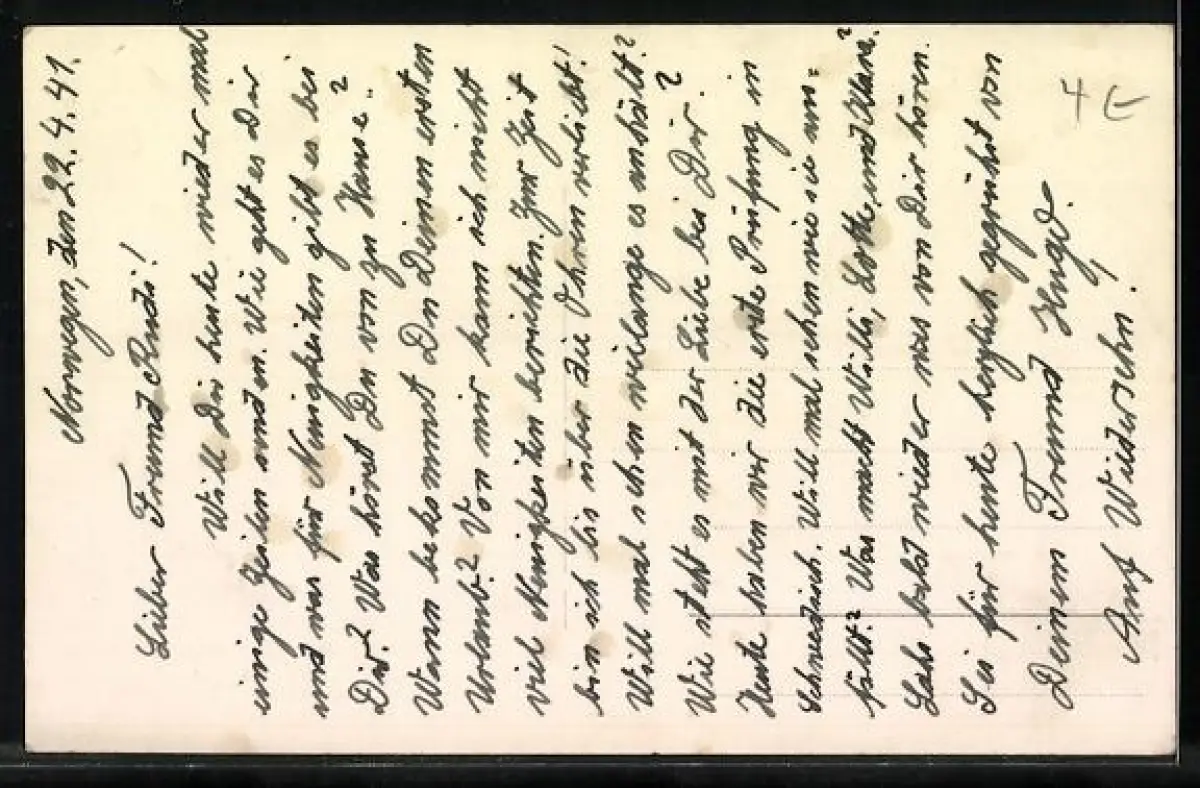 Norwegen, den 22.4.41.
Lieber Freund Rudi!
Will Dir heute wieder mal
einige Zeilen senden. Wie geht es Dir
und was für Neuigkeiten gibt es bei
Dir? Was hörst Du von zu Hause?
Wann bekommst Du Deinen ersten
Urlaub? Von mir kann ich nicht
viel Neuigkeiten berichten. Zur Zeit
bin ich bis über die Ohren verliebt!
Will mal sehen wielange es anhält?
Wie steht es mit der Liebe bei Dir?
Heute haben wir die erste Prüfung in
Schwedisch. Will mal sehen wie sie aus=
fällt? Was macht Willi, Lotte und Klara?
Lass bald wieder was von Dir hören.
Sei für heute herzlich gegrüßt von
Deinem Freund Hugo.
Auf Wiedersehn!